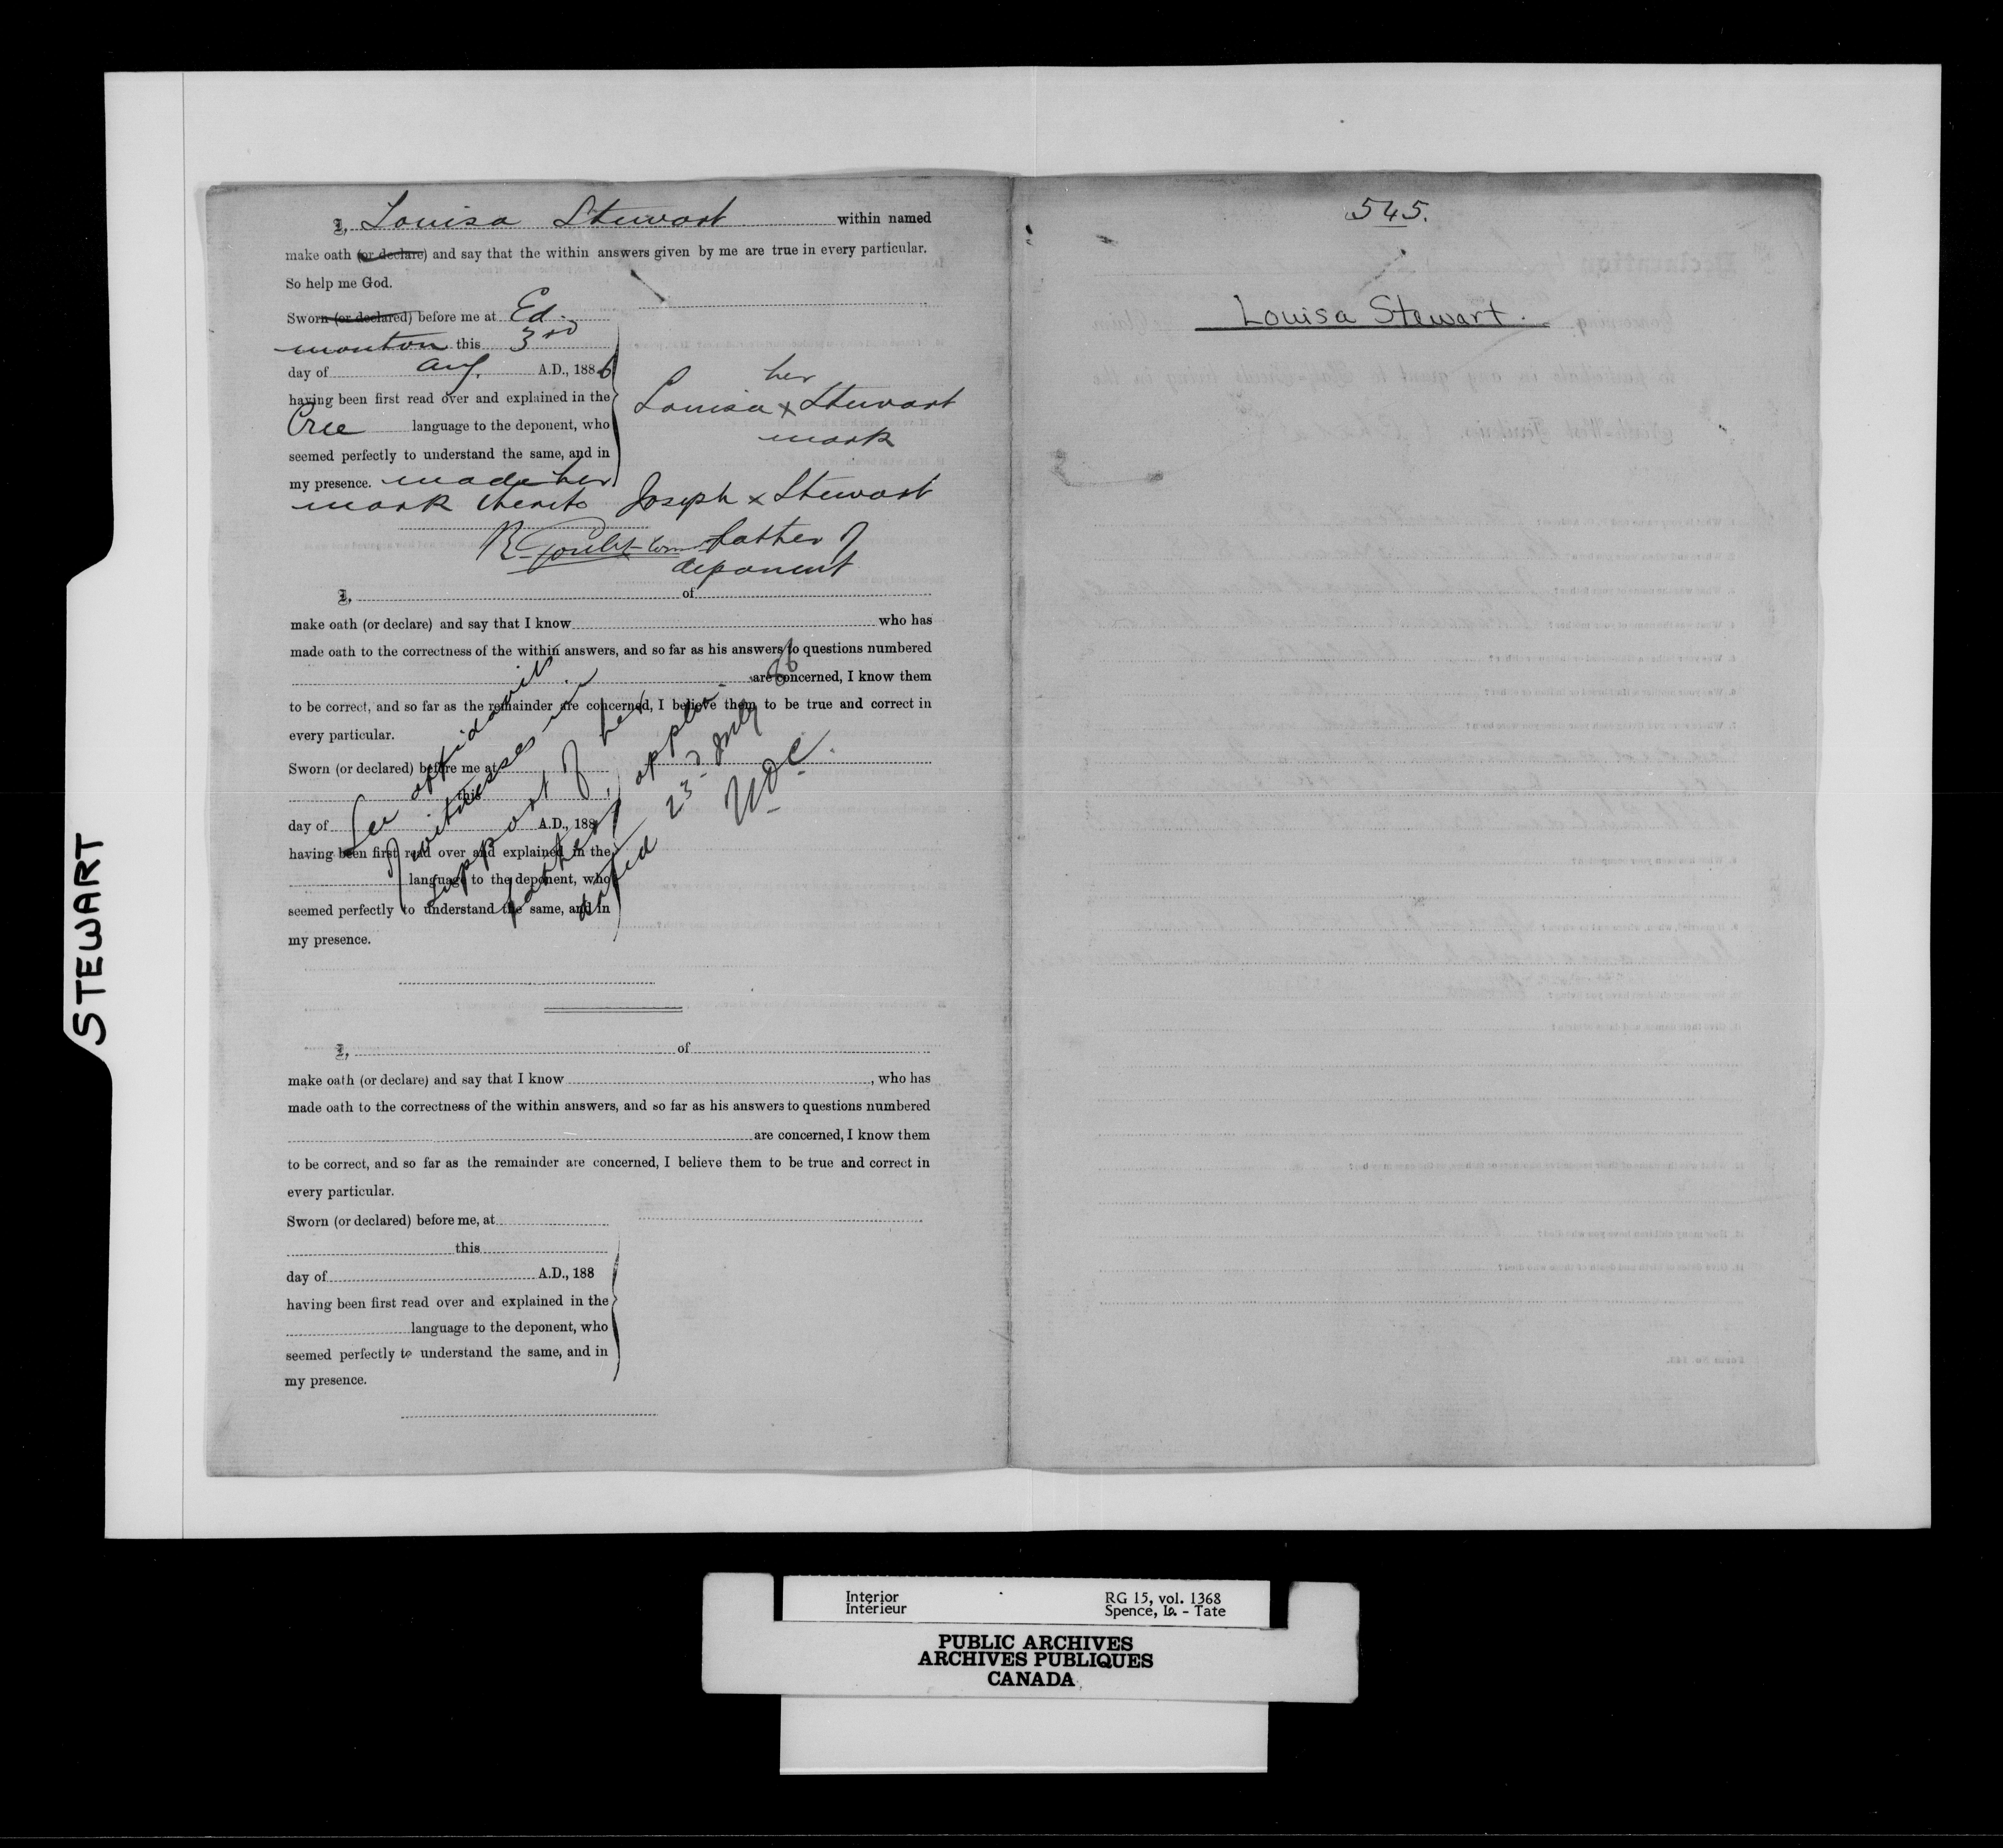 STEWART
I, Louisa Stewart within named
make oath (or declare) and say that the within answers given by me are true in every particular.
So help me God.
Sworn (or declared) before me at Ed-
monton this 3rd
day of Aug. A.D., 1886
having been first read over and explained in the
Cree language to the deponent, who
seemed perfectly to understand the same, and in
my presence. made her
mark thereto
her
Louisa x Stewart
mark
Joseph x Stewart
father of
deponent
R. Goulet
I, of
make oath (or declare) and say that I know who has
made oath to the correctness of the within answers, and so far as his answers to questions numbered
are concerned, I know them
to be correct, and so far as the remainder are concerned, I believe them to be true and correct in
every particular.
Sworn (or declared) before me at
this
day of A.D., 188
having been first read over and explained in the
language to the deponent, who
seemed perfectly to understand the same, and in
my presence.
See affidavit
of witnesses in
support of her
father's appln.
dated 23 July 86
I, of
make oath (or declare) and say that I know , who has
made oath to the correctness of the within answers, and so far as his answers to questions numbered
are concerned, I know them
to be correct, and so far as the remainder are concerned, I believe them to be true and correct in
every particular.
Sworn (or declared) before me, at
this
day of A.D., 188
having been first read over and explained in the
language to the deponent, who
seemed perfectly to understand the same, and in
my presence.
545.
Louisa Stewart.
Interior
Intérieur
RG 15, vol. 1368
Spence, Lo. - Tate
PUBLIC ARCHIVES
ARCHIVES PUBLIQUES
CANADA